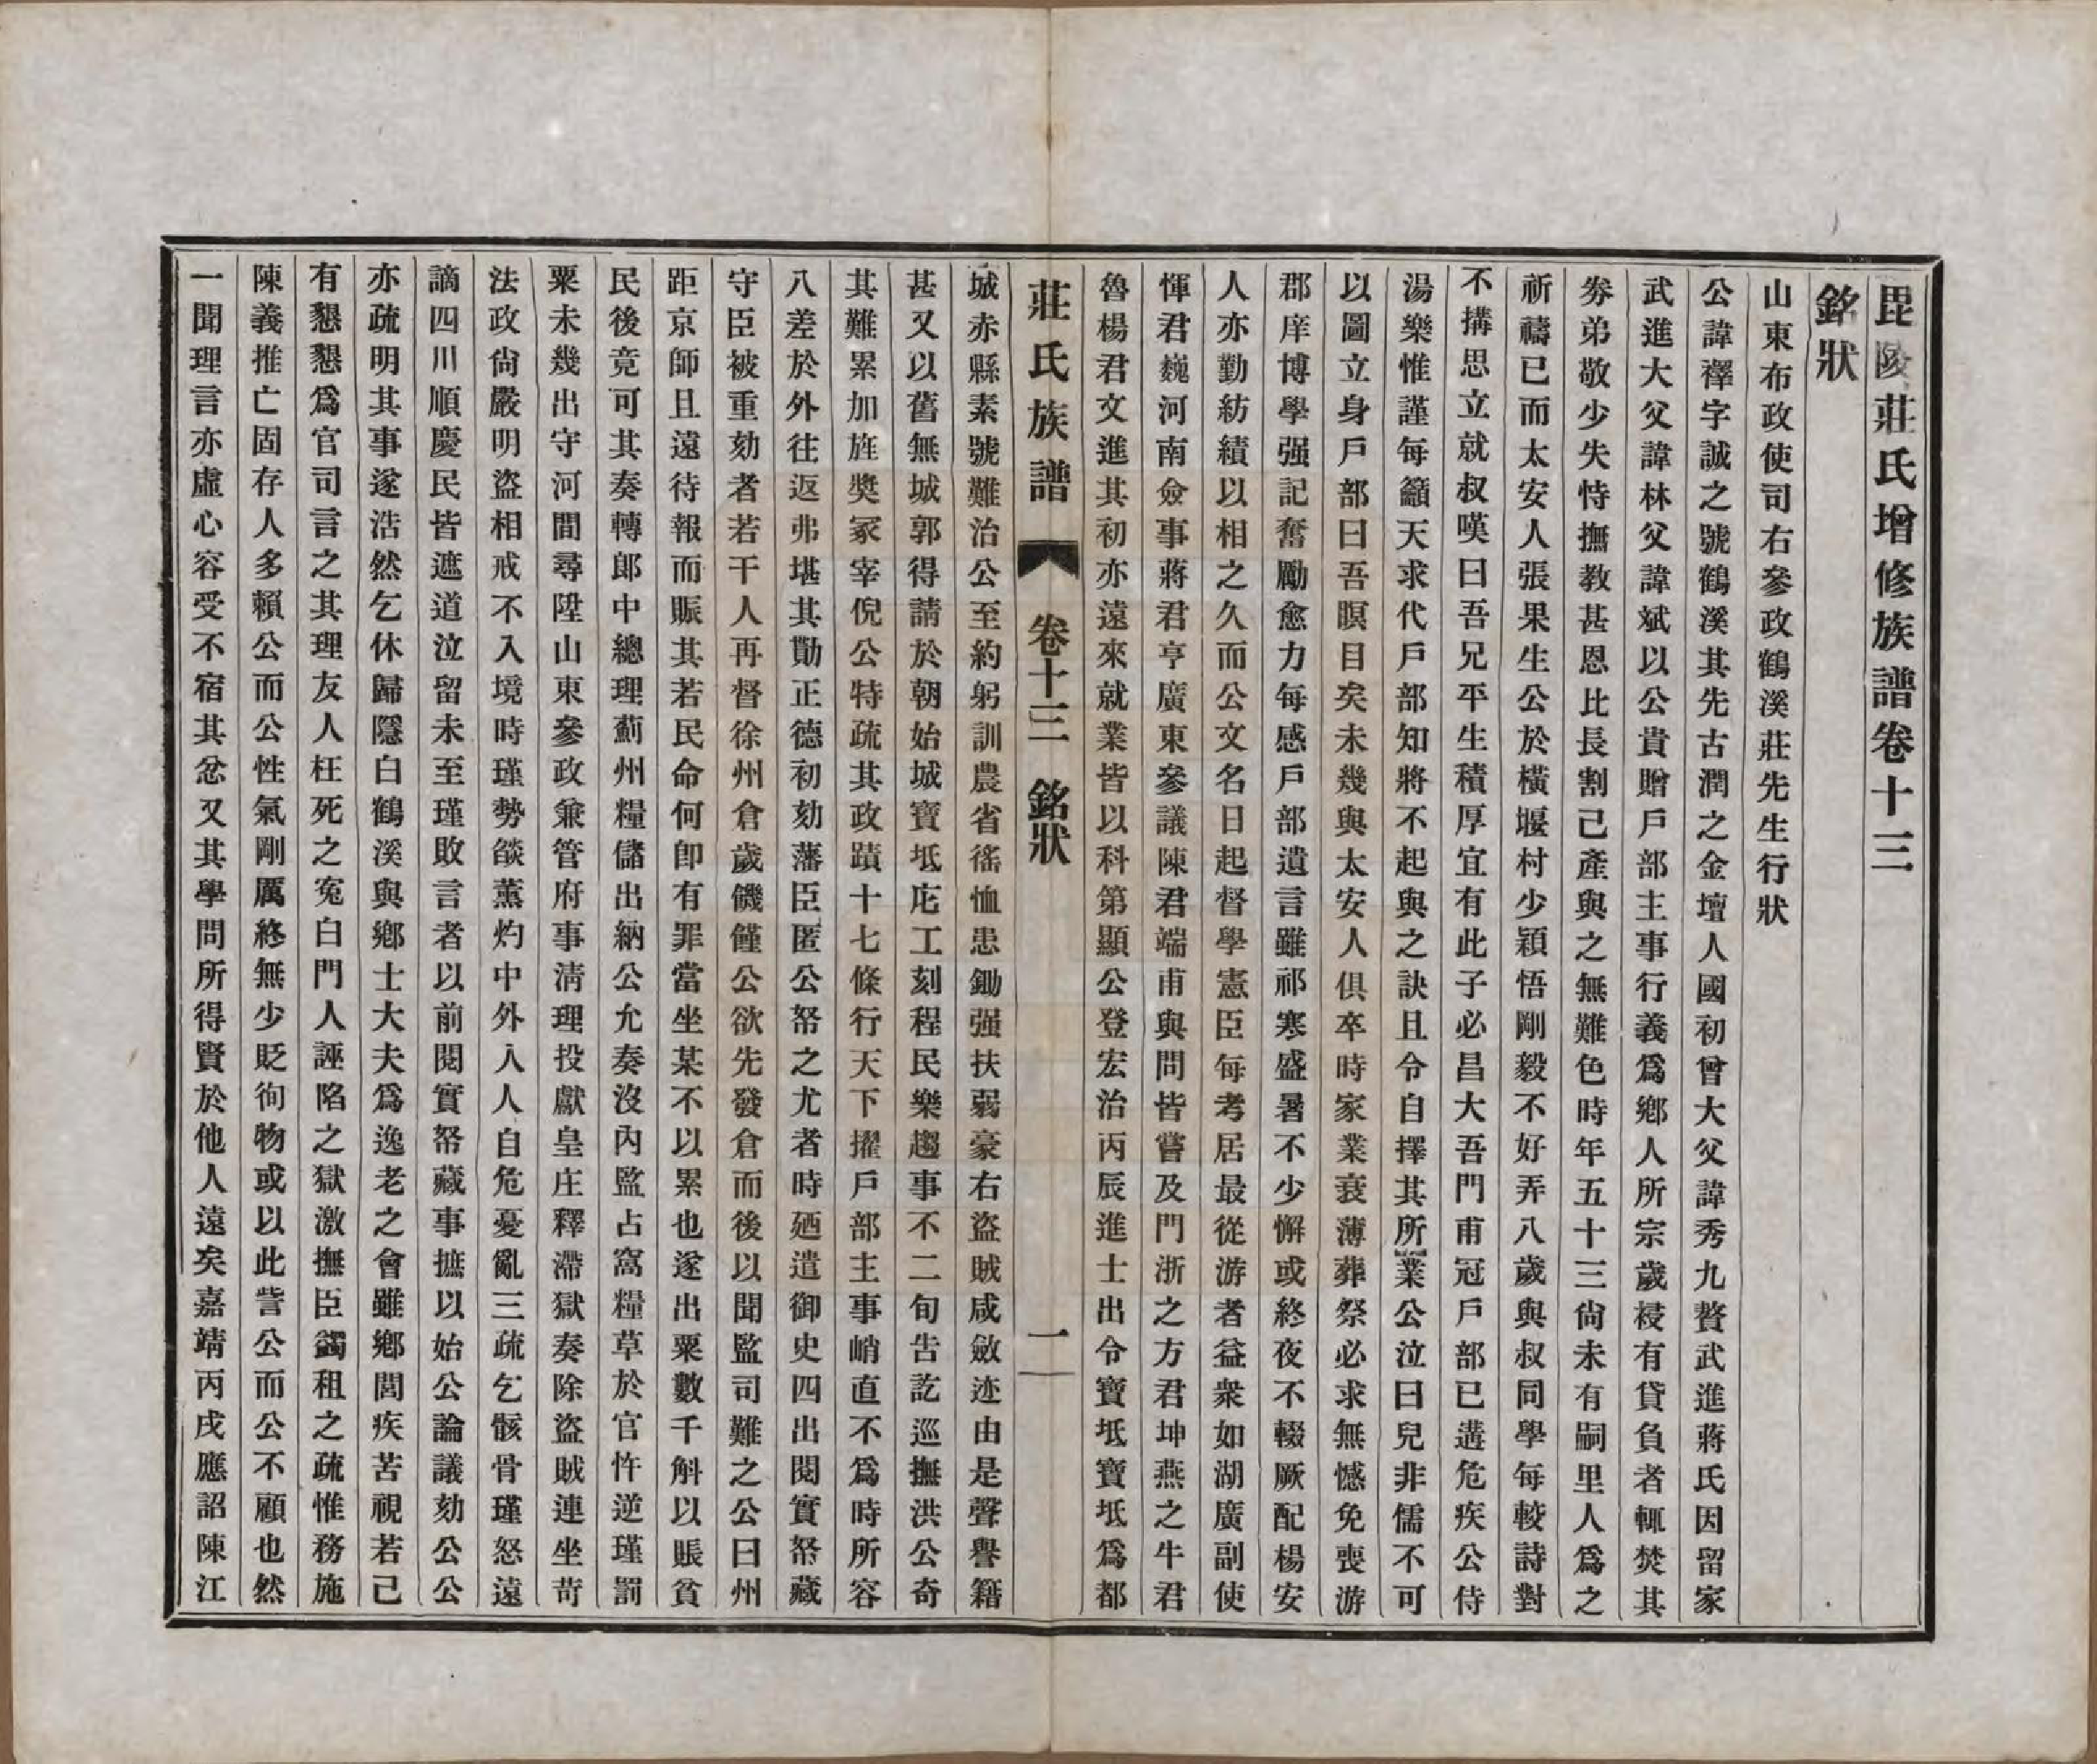 毘陵莊氏增修族譜卷十三
銘狀
山東布政使司右參政鶴溪莊先生行狀
公諱襗字誠之號鶴溪其先古潤之金壇人國初曾大父諱秀九贅武進蔣氏因留家
武進大父諱林父諱斌以公貴贈戶部主事行義爲鄉人所宗歲祲有貸負者輒焚其
券弟敬少失恃撫教甚恩比長割己產與之無難色時年五十三尙未有嗣里人爲之
祈禱已而太安人張果生公於橫堰村少穎悟剛毅不好弄八歲與叔同學每較詩對
不搆思立就叔嘆曰吾兄平生積厚宜有此子必昌大吾門甫冠戶部已遘危疾公侍
湯樂惟謹每籲天求代戶部知將不起與之訣且令自擇其所業公泣曰兒非儒不可
以圖立身戶部曰吾瞑目矣未幾與太安人俱卒時家業衰薄葬祭必求無憾免喪游
郡庠博學强記奮勵愈力每感戶部遺言雖祁寒盛暑不少懈或終夜不輟厥配楊安
人亦勤紡績以相之久而公文名日起督學憲臣每考居最從游者益衆如湖廣副使
惲君巍河南僉事蔣君亨廣東參議陳君端甫與問皆嘗及門浙之方君坤燕之牛君
魯楊君文進其初亦遠來就業皆以科第顯公登宏治丙辰進士出令寶坻寶坻爲都
莊氏族譜 卷十三 銘狀 一
城赤縣素號難治公至約躬訓農省徭恤患鋤强扶弱豪右盜賊咸斂迹由是聲譽籍
甚又以舊無城郭得請於朝始城寶坻庀工刻程民樂趨事不二旬告訖巡撫洪公奇
其難累加旌獎冢宰倪公特疏其政蹟十七條行天下擢戶部主事峭直不爲時所容
八差於外往返弗堪其勩正德初劾藩臣匿公帑之尤者時廼遣御史四出閱實帑藏
守臣被重劾者若干人再督徐州倉歲饑僅公欲先發倉而後以聞監司難之公曰州
距京師且遠待報而賑其若民命何卽有罪當坐某不以累也遂出粟數千斛以賬貧
民後竟可其奏轉郎中總理薊州糧儲出納公允奏沒內監占窩糧草於官忤逆瑾罰
粟未幾出守河間尋陞山東參政兼管府事淸理投獻皇庄釋滯獄奏除盜賊連坐苛
法政尙嚴明盜相戒不入境時瑾勢燄薰灼中外入人自危憂亂三疏乞骸骨瑾怒遠
謫四川順慶民皆遮道泣留未至瑾敗言者以前閱實帑藏事摭以始公論議劾公公
亦疏明其事遂浩然乞休歸隱白鶴溪與鄉士大夫爲逸老之會雖鄉閭疾苦視若己
有懇懇爲官司言之其理友人枉死之寃白門人誣陷之獄激撫臣蠲租之疏惟務施
陳義推亡固存人多賴公而公性氣剛厲終無少貶徇物或以此訾公而公不顧也然
一聞理言亦虛心容受不宿其忿又其學問所得賢於他人遠矣嘉靖丙戌應詔陳江